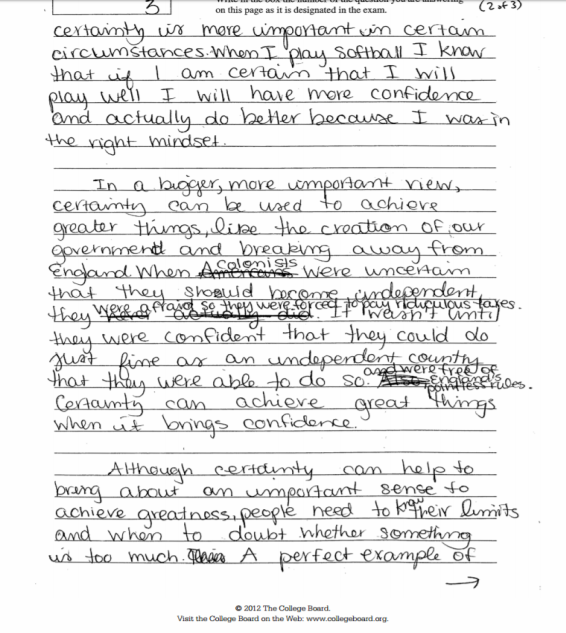 3
on this page as it is designated in the exam.
(2 of 3)
certainty is more important in certain
circumstances. When I play softball I know
that if I am certain that I will
play well I will have more confidence
and actually do better because I was in
the right mindset.
In a bigger, more important view,
certainty can be used to achieve
greater things, like the creation of our
government and breaking away from
England. When colonists were uncertain
that they should become independent,
they were afraid so they were forced to pay ridiculous taxes.
It wasn't until
they were confident that they could do
just fine as an independent country
that they were able to do so. and were free of
England's
pointless rules.
Certainty can achieve great things
when it brings confidence.
Although certainty can help to
bring about an important sense to
achieve greatness, people need to know their limits
and when to doubt whether something
is too much. A perfect example of
© 2012 The College Board.
Visit the College Board on the Web: www.collegeboard.org.